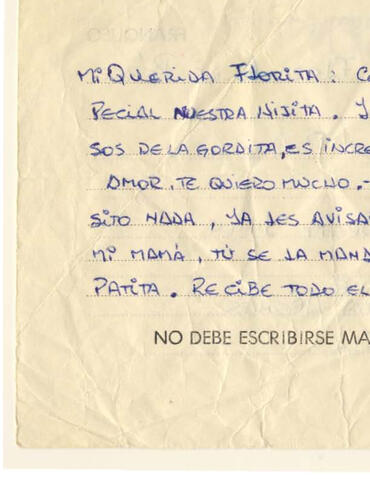 FRANQUEO
Mi QUERIDA FLORITA: C
PECIAL NUESTRA HIJITA. Y
SOS DE LA GORDITA, ES INCRE
AMOR, TE QUIERO MUCHO.-
SITO NADA, YA LES AVISA
MI MAMÁ, TÚ SE LA MAND
PATITA. RECIBE TODO EL
NO DEBE ESCRIBIRSE MA